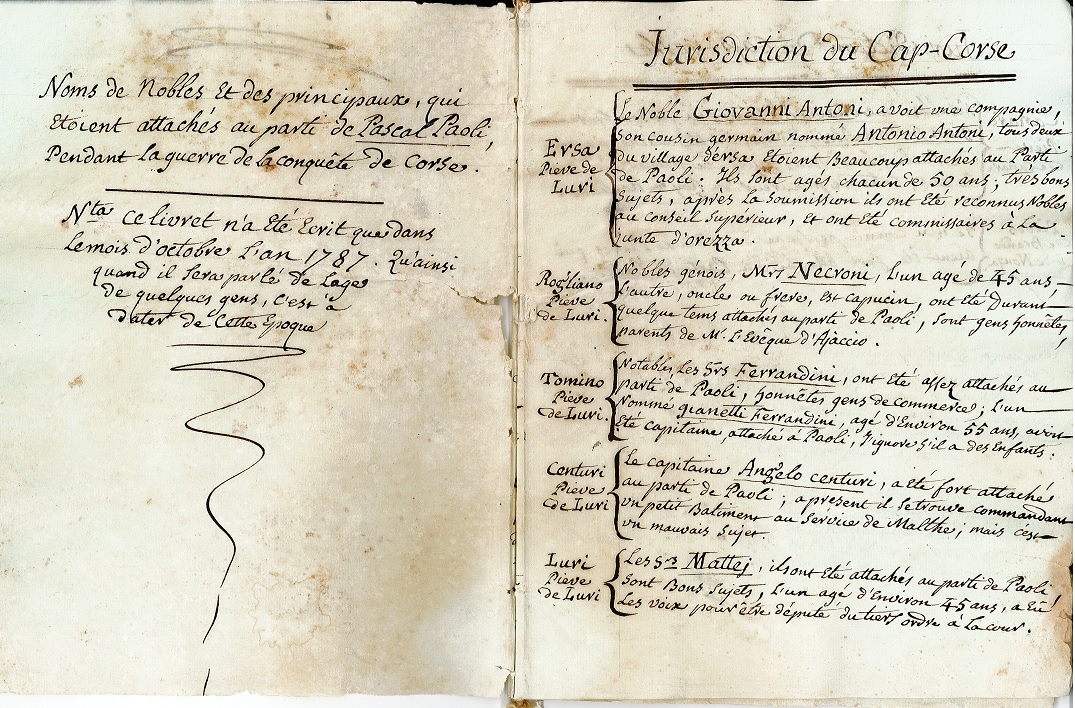 Noms de Nobles Et des principaux, qui
Etoient attachés au parti de Pascal Paoli,
Pendant la guerre de la conquête de Corse.
Nta ce livret n'a Eté Ecrit que dans
Le mois d'octobre L'an 1787. Qu'ainsi
quand il sera parlé de Lage
de quelques gens, c'est à
dater de Cette Epoque
Jurisdiction du Cap-Corse
Ersa
Pieve de
Luri
Le Noble Giovanni Antoni, avoit une compagnie,
Son cousin germain nommé Antonio Antoni, tous deux
du village d'ersa Etoient Beaucoup attachés au Parti
de Paoli. Ils sont agés chacun de 50 ans, très bons
Sujets, après la Soumission ils ont Eté reconnus Nobles
au Conseil Supérieur, Et ont Eté commissaires à La
junte d'orezza.
Rogliano
Pieve
de Luri.
Nobles génois, Mrs Necroni, L'un agé de 45 ans
L'autre, oncle ou frere, Est capucin, ont Eté Durant
quelque tems attachés au parti de Paoli, sont gens honnêtes,
parents de Mr. L'Evêque d'Ajaccio.
Tomino
Pieve
de Luri.
Notables, Les Srs Ferrandini, ont Eté assez attachés au
parti de Paoli, honnêtes gens de commerce; L'un
Nommé gianetti Ferrandini, agé d'Environ 55 ans, avoit
Eté capitaine, attaché à Paoli, J'ignore s'il a des Enfants.
Centuri
Pieve
de Luri
Le capitaine Angelo centuri, a Eté fort attaché
au parti de Paoli; apresent il se trouve commandant
un petit Batiment au Service de Malthe; mais c'est
un mauvais sujet.
Luri
Pieve
de Luri
Les Srs Mattej, ils ont Eté attachés au parti de Paoli,
Sont Bons Sujets, L'un agé d'Environ 45 ans, a Eû
Les voix pour être député du tiers ordre à La cour.